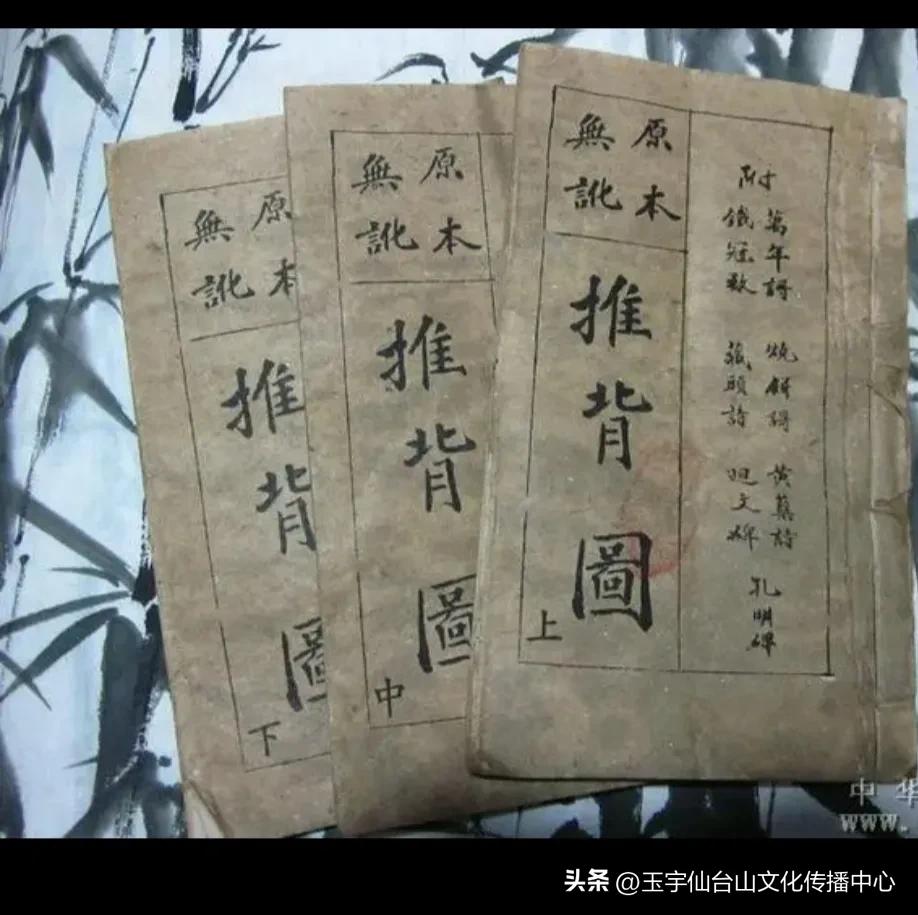 附
萬年謌 燒餅謌 黃蘗詩
鐵冠数 藏頭詩 迴文碑
孔明碑
原本
無訛
推背圖
上
原本
無訛
推背圖
中
原本
無訛
推背圖
下
中华
www.
头条 @玉宇仙台山文化传播中心